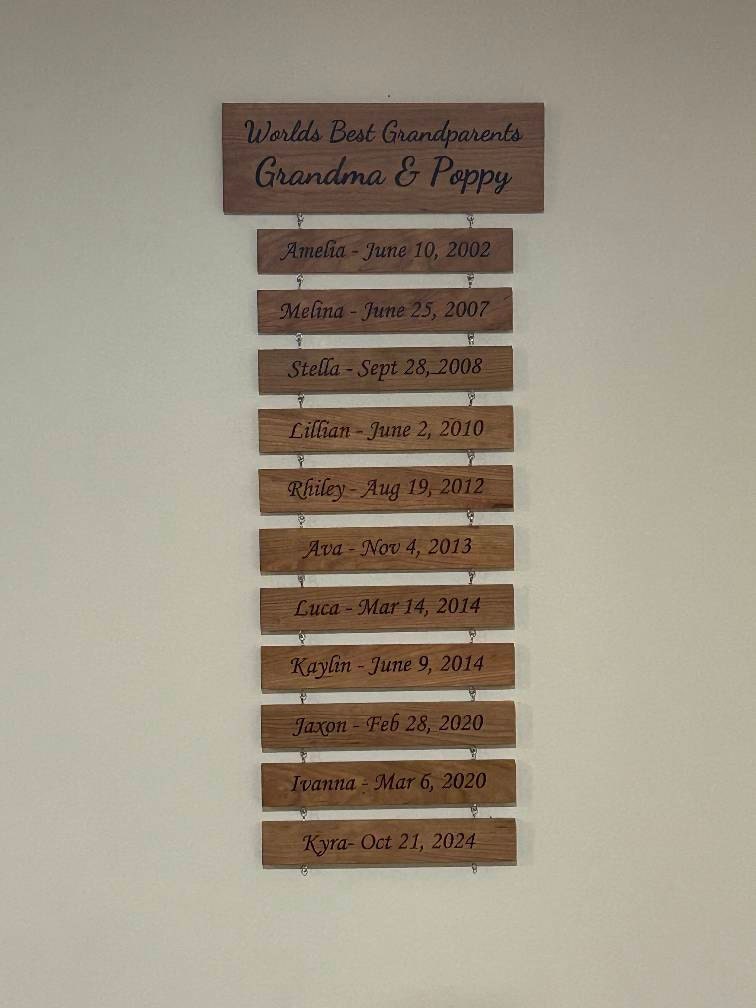 Worlds Best Grandparents
Grandma & Poppy
Amelia - June 10, 2002
Melina - June 25, 2007
Stella - Sept 28, 2008
Lillian - June 2, 2010
Rhiley - Aug 19, 2012
Ava - Nov 4, 2013
Luca - Mar 14, 2014
Kaylin - June 9, 2014
Jaxon - Feb 28, 2020
Ivanna - Mar 6, 2020
Kyra- Oct 21, 2024